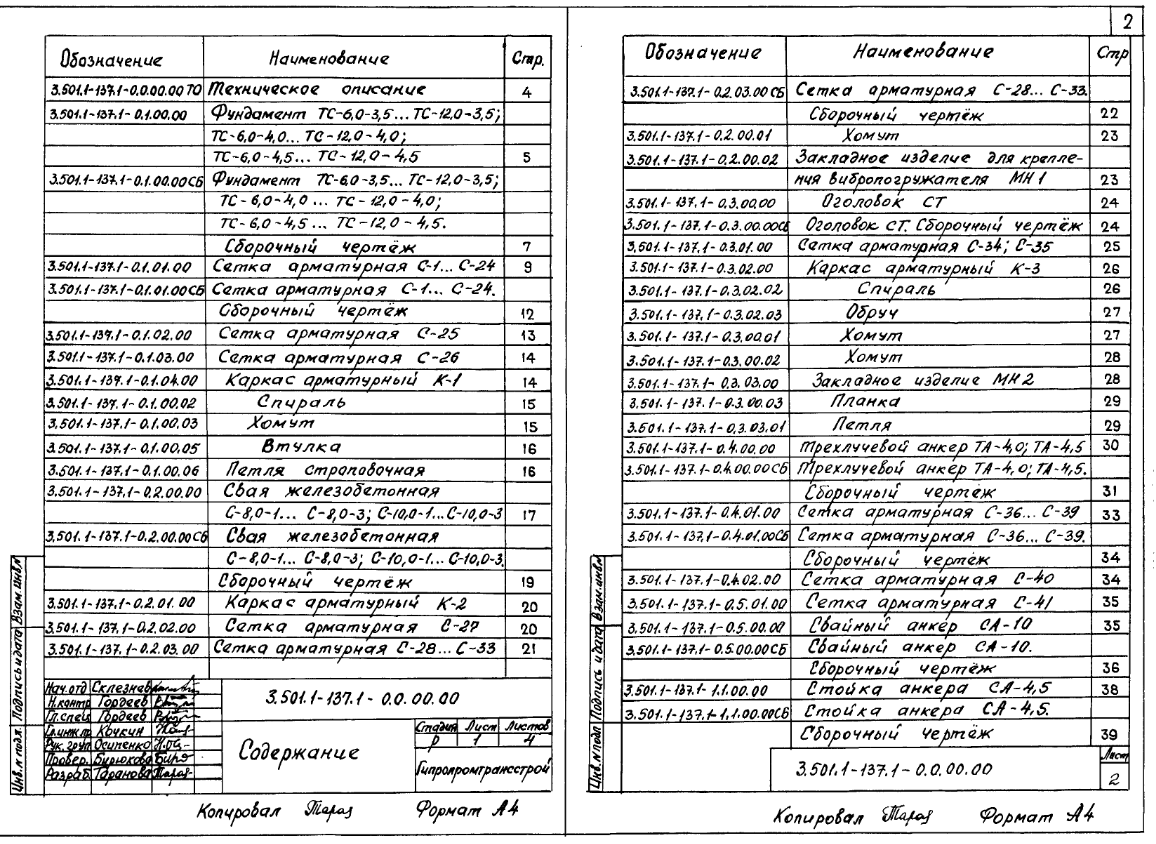 2
Обозначение Наименование Стр.
3.501.1-137.1-0.0.00.00 ТО Техническое описание 4
3.501.1-137.1-0.1.00.00 Фундамент ТС-6,0-3,5... ТС-12,0-3,5;
ТС-6,0-4,0... ТС-12,0-4,0;
ТС-6,0-4,5... ТС-12,0-4,5 5
3.501.1-137.1-0.1.00.00СБ Фундамент ТС-6,0-3,5... ТС-12,0-3,5;
ТС-6,0-4,0 ... ТС-12,0-4,0;
ТС-6,0-4,5 ... ТС-12,0-4,5.
Сборочный чертёж 7
3.501.1-137.1-0.1.01.00 Сетка арматурная С-1... С-24 9
3.501.1-137.1-0.1.01.00СБ Сетка арматурная С-1... С-24.
Сборочный чертёж 12
3.501.1-137.1-0.1.02.00 Сетка арматурная С-25 13
3.501.1-137.1-0.1.03.00 Сетка арматурная С-26 14
3.501.1-137.1-0.1.04.00 Каркас арматурный К-1 14
3.501.1-137.1-0.1.00.02 Спираль 15
3.501.1-137.1-0.1.00.03 Хомут 15
3.501.1-137.1-0.1.00.05 Втулка 16
3.501.1-137.1-0.1.00.06 Петля строповочная 16
3.501.1-137.1-0.2.00.00 Свая железобетонная
С-8,0-1... С-8,0-3; С-10,0-1...С-10,0-3 17
3.501.1-137.1-0.2.00.00СБ Свая железобетонная
С-8,0-1... С-8,0-3; С-10,0-1... С-10,0-3.
Сборочный чертёж 19
3.501.1-137.1-0.2.01.00 Каркас арматурный К-2 20
3.501.1-137.1-0.2.02.00 Сетка арматурная С-27 20
3.501.1-137.1-0.2.03.00 Сетка арматурная С-28... С-33 21
Нач.отд Склезнев
Н.контр Гордеев
Гл.спец Гордеев
Гл.инж.пр Кочкин
Рук.груп Осипенко
Провер. Бирюкова
Разраб. Таранова
3.501.1-137.1-0.0.00.00
Содержание
Стадия Лист Листов
Р 1 4
Гипропромтрансстрой
Инв.№ подл. Подпись и дата Взам.инв.№
Копировал Тараз Формат А4
Обозначение Наименование Стр
3.501.1-137.1-0.2.03.00СБ Сетка арматурная С-28... С-33.
Сборочный чертёж 22
3.501.1-137.1-0.2.00.01 Хомут 23
3.501.1-137.1-0.2.00.02 Закладное изделие для крепле-
ния вибропогружателя МН1 23
3.501.1-137.1-0.3.00.00 Оголовок СТ 24
3.501.1-137.1-0.3.00.00СБ Оголовок СТ. Сборочный чертёж 24
3.501.1-137.1-0.3.01.00 Сетка арматурная С-34; С-35 25
3.501.1-137.1-0.3.02.00 Каркас арматурный К-3 26
3.501.1-137.1-0.3.02.02 Спираль 26
3.501.1-137.1-0.3.02.03 Обруч 27
3.501.1-137.1-0.3.00.01 Хомут 27
3.501.1-137.1-0.3.00.02 Хомут 28
3.501.1-137.1-0.3.03.00 Закладное изделие МН2 28
3.501.1-137.1-0.3.00.03 Планка 29
3.501.1-137.1-0.3.03.01 Петля 29
3.501.1-137.1-0.4.00.00 Трехлучевой анкер ТА-4,0; ТА-4,5 30
3.501.1-137.1-0.4.00.00СБ Трехлучевой анкер ТА-4,0; ТА-4,5.
Сборочный чертёж 31
3.501.1-137.1-0.4.01.00 Сетка арматурная С-36... С-39 33
3.501.1-137.1-0.4.01.00СБ Сетка арматурная С-36... С-39.
Сборочный чертёж 34
3.501.1-137.1-0.4.02.00 Сетка арматурная С-40 34
3.501.1-137.1-0.5.01.00 Сетка арматурная С-41 35
3.501.1-137.1-0.5.00.00 Свайный анкер СА-10 35
3.501.1-137.1-0.5.00.00СБ Свайный анкер СА-10.
Сборочный чертёж 36
3.501.1-137.1-1.1.00.00 Стойка анкера СА-4,5 38
3.501.1-137.1-1.1.00.00СБ Стойка анкера СА-4,5.
Сборочный чертёж 39
3.501.1-137.1-0.0.00.00
Лист
2
Инв.№ подл Подпись и дата Взам.инв.№
Копировал Тараз Формат А4